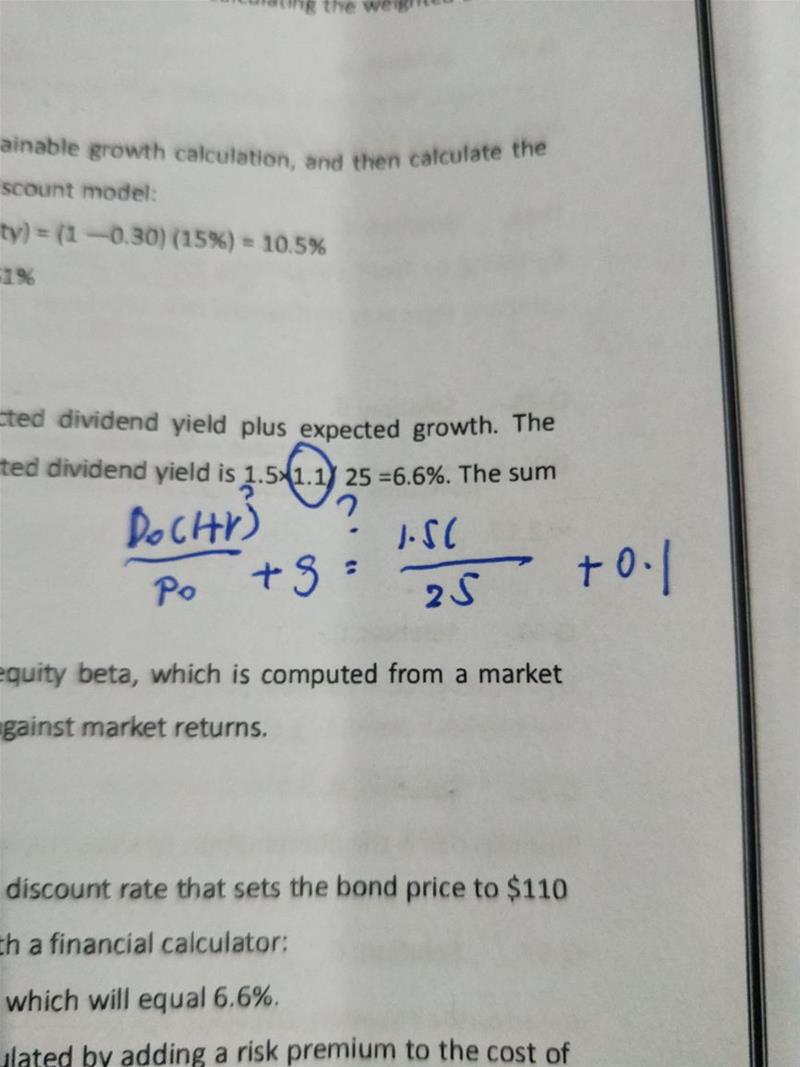 the weighted
ainable growth calculation, and then calculate the
scount model:
ty) = (1 —0.30) (15%) = 10.5%
1%
cted dividend yield plus expected growth. The
ted dividend yield is 1.5×1.1/ 25 =6.6%. The sum
? ?
D₀(1+r) / P₀ + g = 1.5( / 25 + 0.1
equity beta, which is computed from a market
gainst market returns.
discount rate that sets the bond price to $110
th a financial calculator:
which will equal 6.6%.
ulated by adding a risk premium to the cost of